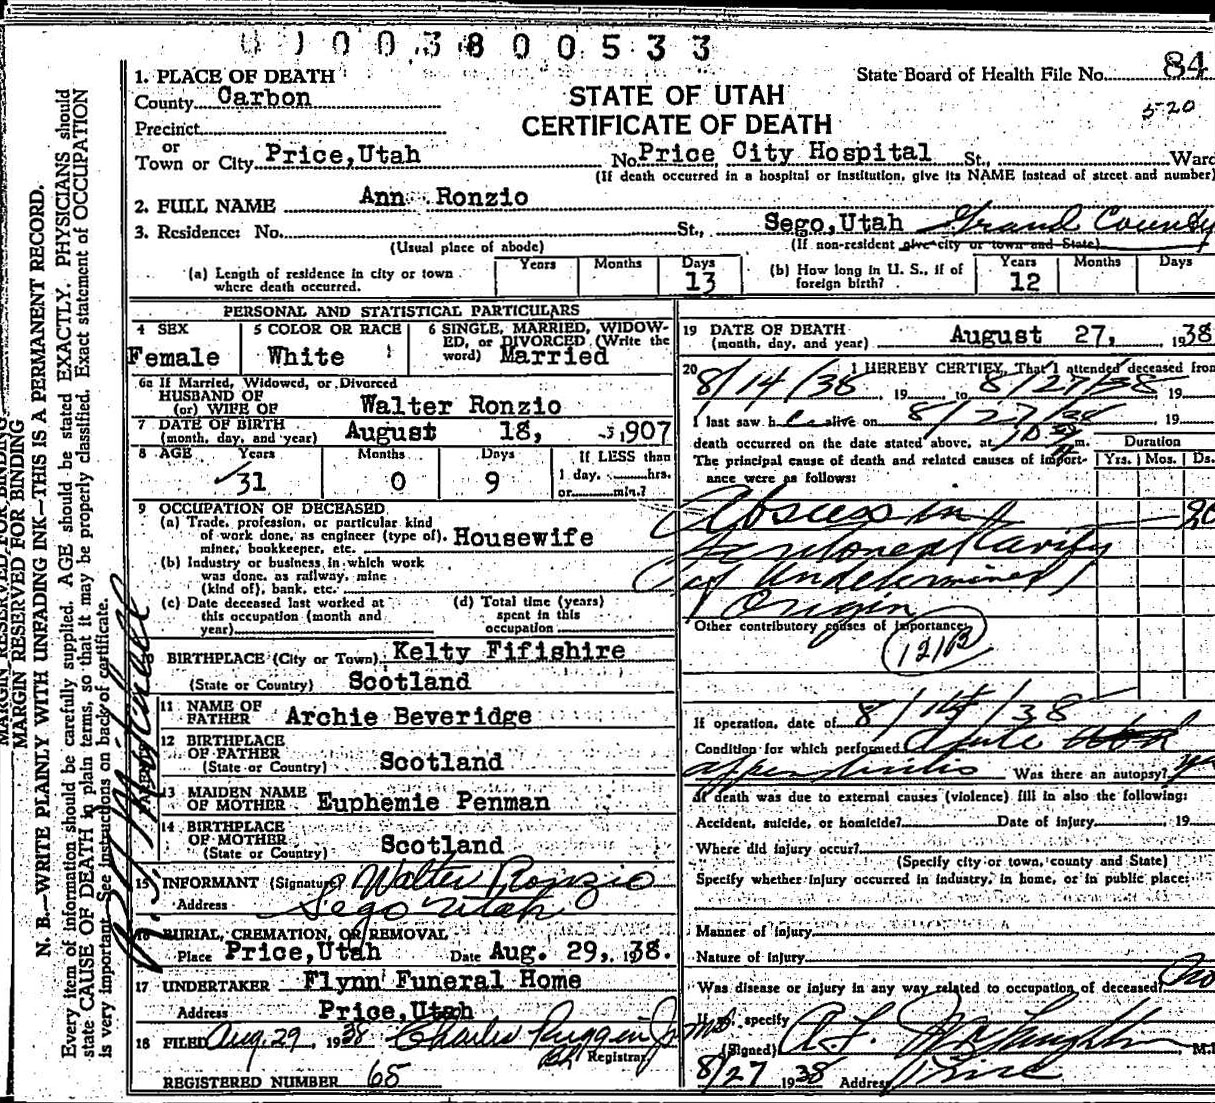 0 1 0 0 3 8 0 0 5 3 3
State Board of Health File No. 84
5-20
1. PLACE OF DEATH
County Carbon
STATE OF UTAH
CERTIFICATE OF DEATH
Precinct
or
Town or City Price,Utah No. Price City Hospital St., Ward
(If death occurred in a hospital or institution, give its NAME instead of street and number)
2. FULL NAME Ann Ronzio
3. Residence: No. St., Sego,Utah Grand County
(Usual place of abode) (If non-resident give city or town and State)
(a) Length of residence in city or town where death occurred. Years Months Days 13
(b) How long in U. S., if of foreign birth? Years 12 Months Days
PERSONAL AND STATISTICAL PARTICULARS
4 SEX Female
5 COLOR OR RACE White
6 SINGLE, MARRIED, WIDOWED, or DIVORCED (Write the word) Married
6a If Married, Widowed, or Divorced
HUSBAND OF
(or) WIFE OF Walter Ronzio
7 DATE OF BIRTH
(month, day, and year) August 18, 1907
8 AGE Years 31 Months 0 Days 9 If LESS than
1 day, hrs.
or min.?
9 OCCUPATION OF DECEASED
(a) Trade, profession, or particular kind
of work done, as engineer (type of), Housewife
miner, bookkeeper, etc.
(b) Industry or business in which work
was done, as railway, mine
(kind of), bank, etc.
(c) Date deceased last worked at
this occupation (month and
year)
(d) Total time (years)
spent in this
occupation
BIRTHPLACE (City or Town) Kelty Fifishire
(State or Country) Scotland
PARENTS
11 NAME OF
FATHER Archie Beveridge
12 BIRTHPLACE
OF FATHER
(State or Country) Scotland
13 MAIDEN NAME
OF MOTHER Euphemie Penman
14 BIRTHPLACE
OF MOTHER
(State or Country) Scotland
15 INFORMANT (Signature) Walter Ronzio
Address Sego Utah
16 BURIAL, CREMATION, OR REMOVAL
Place Price,Utah Date Aug. 29, 1938.
17 UNDERTAKER Flynn Funeral Home
Address Price,Utah
18 FILED Aug. 29, 1938 Charles Ruggeri Jr
Registrar
REGISTERED NUMBER 65
19 DATE OF DEATH
(month, day, and year) August 27, 1938
20 I HEREBY CERTIFY, That I attended deceased from
8/14/38, 19 to 8/27/38 19
I last saw her alive on 8/27/38, 19
death occurred on the date stated above, at m.
Duration
The principal cause of death and related causes of importance were as follows: Yrs. Mos. Ds.
Abscess in
Peritoneal Cavity
(of Undetermined)
Origin
Other contributory causes of importance:
If operation, date of 8/14/38
Condition for which performed Acute
appendicitis Was there an autopsy?
If death was due to external causes (violence) fill in also the following:
Accident, suicide, or homicide? Date of injury , 19
Where did injury occur?
(Specify city or town, county and State)
Specify whether injury occurred in industry, in home, or in public place:
Manner of injury
Nature of injury
Was disease or injury in any way related to occupation of deceased? No
If so, specify
(Signed) , M.D.
8/27 1938 Address Price
MARGIN RESERVED FOR BINDING
MARGIN RESERVED FOR BINDING
N. B.—WRITE PLAINLY WITH UNFADING INK—THIS IS A PERMANENT RECORD.
Every item of information should be carefully supplied. AGE should be stated EXACTLY. PHYSICIANS should
state CAUSE OF DEATH in plain terms, so that it may be properly classified. Exact statement of OCCUPATION
is very important. See instructions on back of certificate.